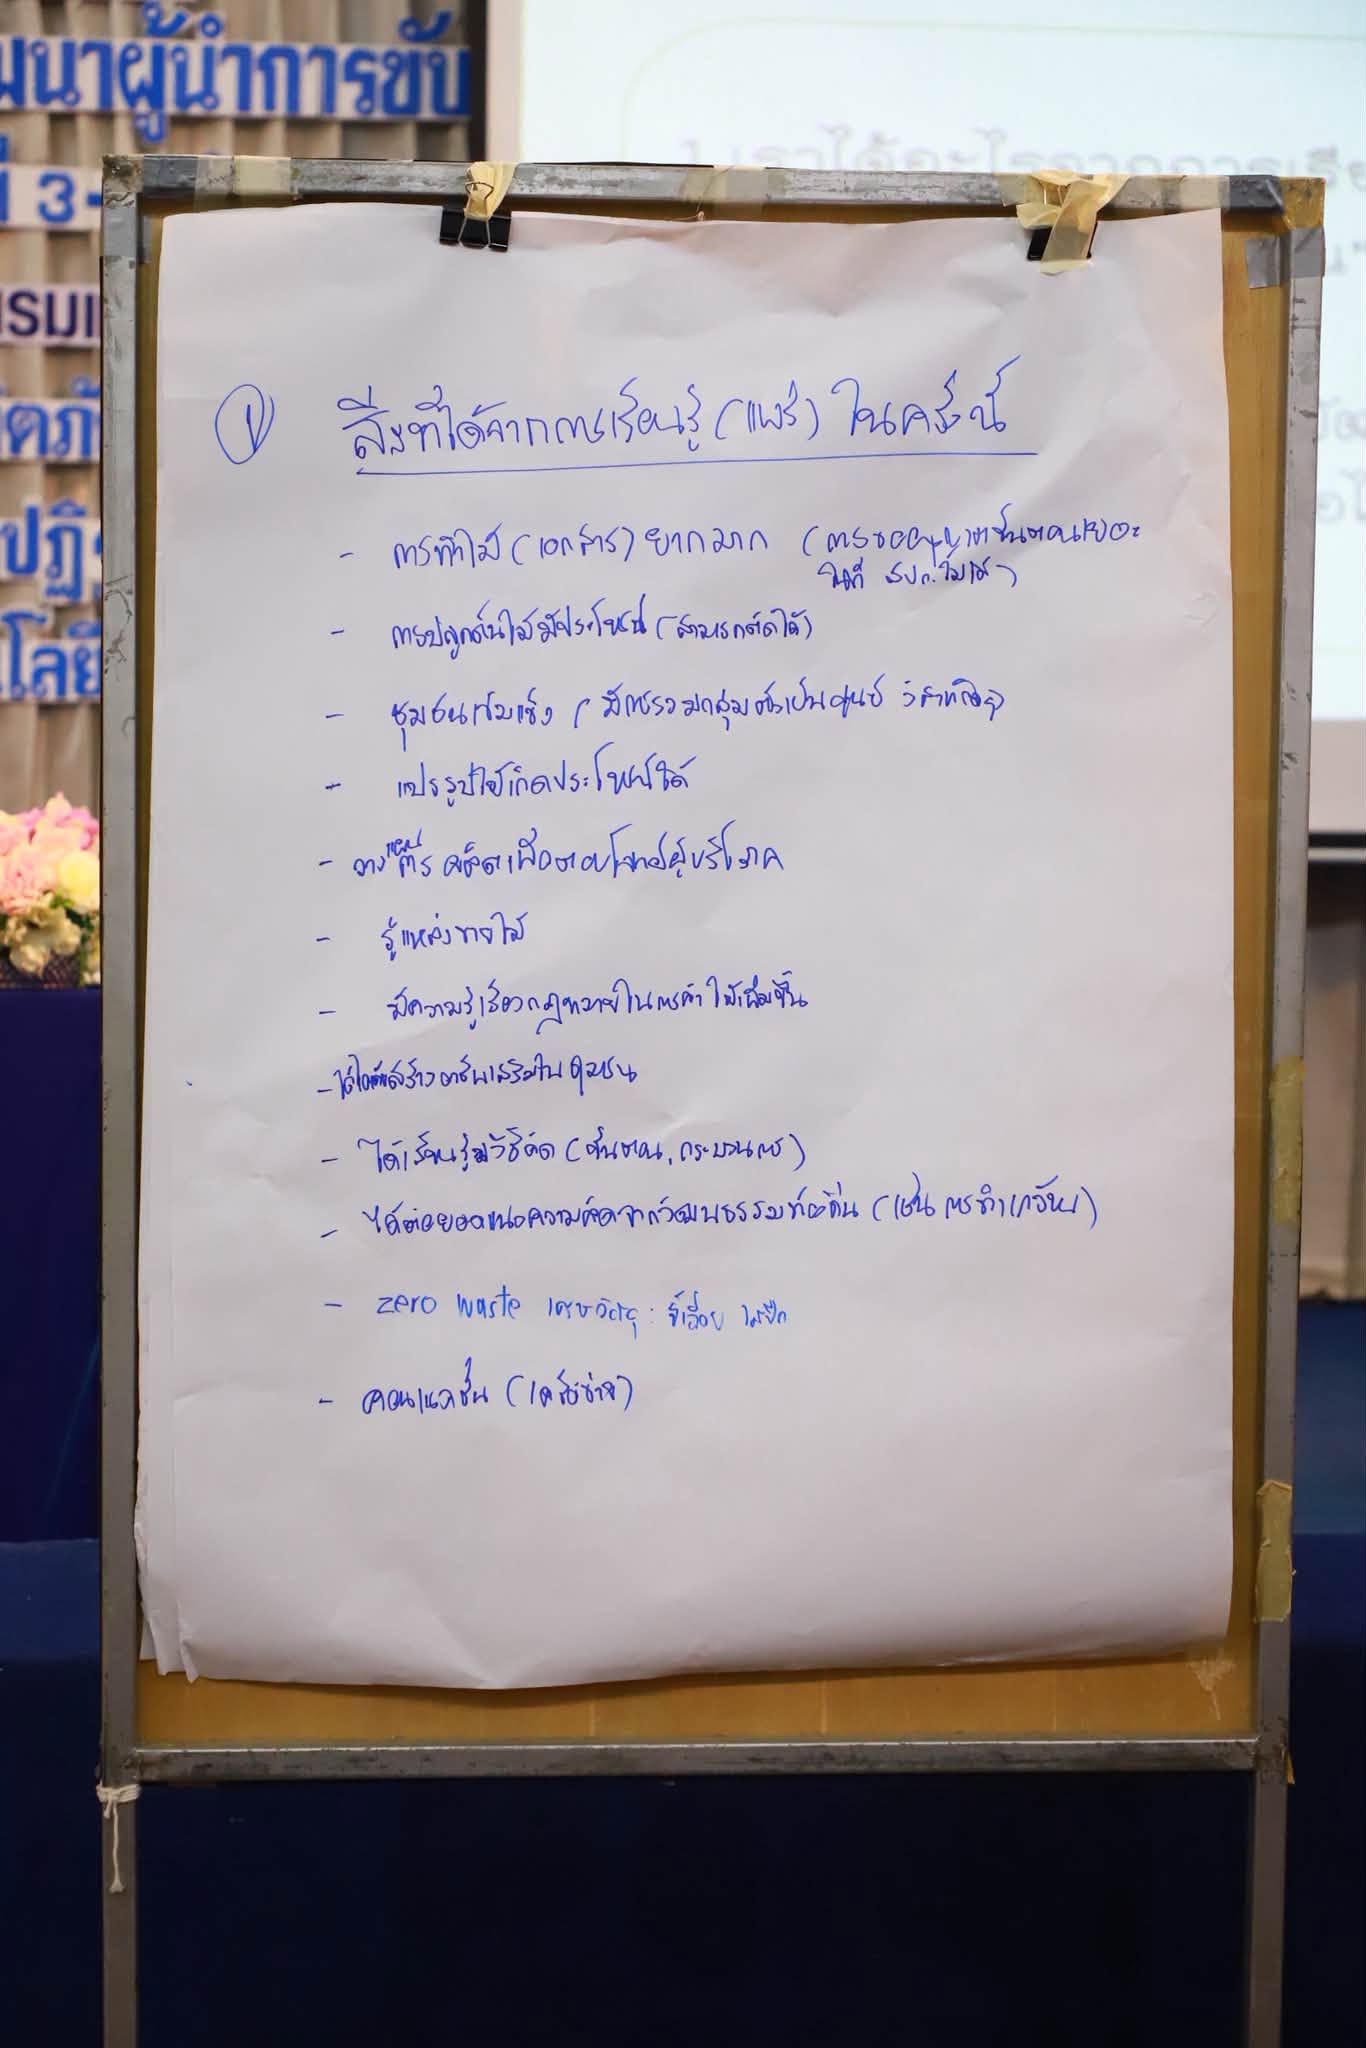 ฒนาผู้นำการขับ
3-
รมแ
ปฏิ
โลยี
1. เราได้อะไรจากการเรีย
1
สิ่งที่ได้จากการเรียนรู้ (แพร่) ในครั้งนี้
- การทำไม้ (เอกสาร) ยากมาก (การขออนุญาตขั้นตอนเยอะ
ในที่ สปก.
- การปลูกต้นไม้มีประโยชน์ (สามารถตัดได้)
- ชุมชนเข้มแข็ง (มีการรวมกลุ่มตั้งเป็นศูนย์ วิสาหกิจ)
- แปรรูปให้เกิดประโยชน์ได้
- วางแผนการผลิตเพื่อตอบโจทย์ผู้บริโภค
- รู้แหล่งขายไม้
- มีความรู้เรื่องกฎหมายในการค้าไม้เพิ่มขึ้น
- สร้างอาชีพเสริมในชุมชน
- ได้เรียนรู้วิธีคิด (ขั้นตอน, กระบวนการ)
- ได้ต่อยอดแนวความคิดจากวัฒนธรรมท้องถิ่น (เช่น การทำแจกัน)
- zero waste เศษวัสดุ : ขี้เลื่อย ไม้ปีก
- คอนเนคชั่น (เครือข่าย)